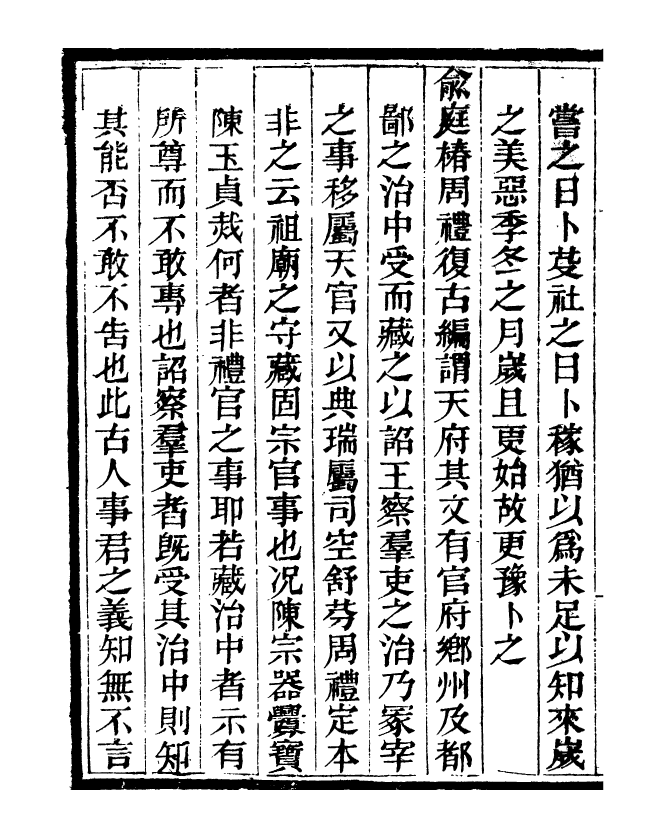 嘗之日卜芟社之日卜稼猶以爲未足以知來歲
之美惡季冬之月歲且更始故更豫卜之
俞庭椿周禮復古編謂天府其文有官府鄉州及都
鄙之治中受而藏之以詔王察羣吏之治乃冢宰
之事移屬天官又以典瑞屬司空舒芬周禮定本
非之云祖廟之守藏固宗官事也况陳宗器釁寶
陳玉貞烖何者非禮官之事耶若藏治中者示有
所尊而不敢專也詔察羣吏者旣受其治中則知
其能否不敢不吿也此古人事君之義知無不言